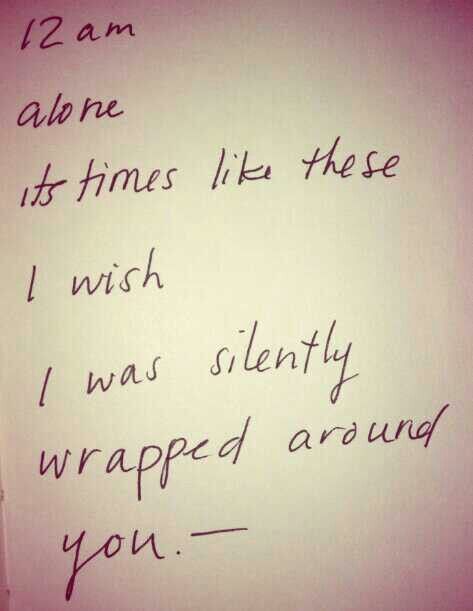 12 am
alone
its times like these
I wish
I was silently
wrapped around
you.—